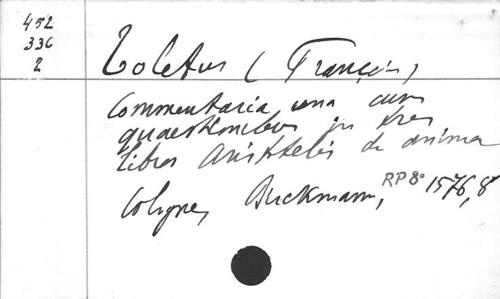 452
336
2
Toletus (François)
Commentaria una cum
quaestionibus in tres
libros Aristotelis de anima
Cologne, Birckmann, RP8° 1576, 8°